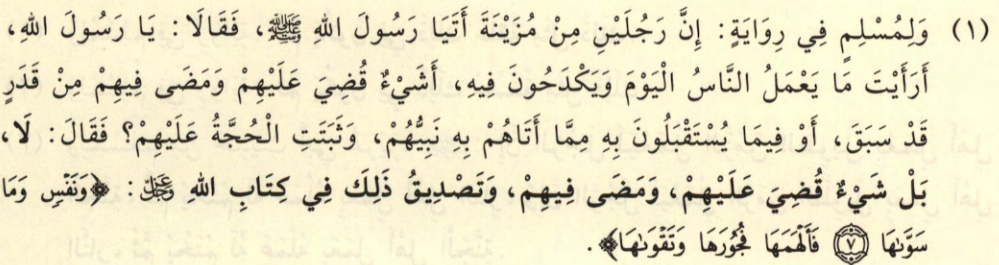 (١) وَلِمُسْلِمٍ فِي رِوَايَةٍ: إِنَّ رَجُلَيْنِ مِنْ مُزَيْنَةَ أَتَيَا رَسُولَ اللهِ ﷺ، فَقَالَا: يَا رَسُولَ اللهِ،
أَرَأَيْتَ مَا يَعْمَلُ النَّاسُ الْيَوْمَ وَيَكْدَحُونَ فِيهِ، أَشَيْءٌ قُضِيَ عَلَيْهِمْ وَمَضَى فِيهِمْ مِنْ قَدَرٍ
قَدْ سَبَقَ، أَوْ فِيمَا يُسْتَقْبَلُونَ بِهِ مِمَّا أَتَاهُمْ بِهِ نَبِيُّهُمْ، وَثَبَتَتِ الْحُجَّةُ عَلَيْهِمْ؟ فَقَالَ: لَا،
بَلْ شَيْءٌ قُضِيَ عَلَيْهِمْ، وَمَضَى فِيهِمْ، وَتَصْدِيقُ ذَلِكَ فِي كِتَابِ اللهِ عَزَّ وَجَلَّ: ﴿وَنَفْسٍ وَمَا
سَوَّىٰهَا ۝٧ فَأَلْهَمَهَا فُجُورَهَا وَتَقْوَىٰهَا﴾.